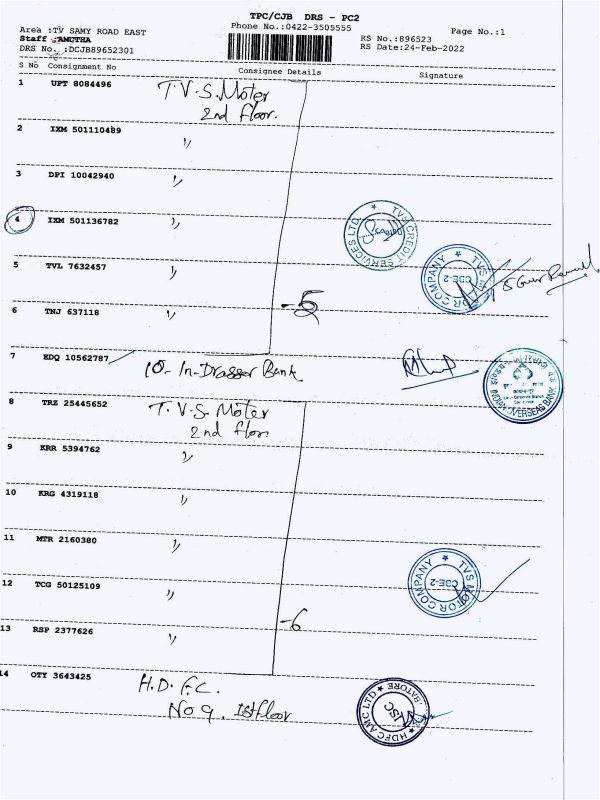 TPC/CJB DRS - PC2
Phone No.:0422-3505555
Page No.:1
Area :TV SAMY ROAD EAST
Staff :AMUTHA
DRS No. :DCJB89652301
RS No.:896523
RS Date:24-Feb-2022
S No Consignment No Consignee Details Signature
1 UPT 8084496 T.V.S. Moter
2nd floor.
2 IXM 501110489 ,,
3 DPI 10042940 ,,
4 IXM 501136782 ,,
TVS CREDIT SERVICES LTD.
5 TVL 7632457 ,,
TVS MOTOR COMPANY
CBE-2
6 TNJ 637118 ,, -5
7 EDQ 10562787
INDIAN OVERSEAS BANK
8 TRZ 25445652 T.V.S. Moter
2nd flor.
9 KRR 5394762 ,,
10 KRG 4319118 ,,
11 MTR 2160380 ,,
TVS MOTOR COMPANY
CBE-2
12 TCG 50125109 ,,
13 RSP 2377626 ,, -6
14 OTY 3643425 H.D.F.C.
No 9, 1st floor
HDFC AMC LTD
ISC